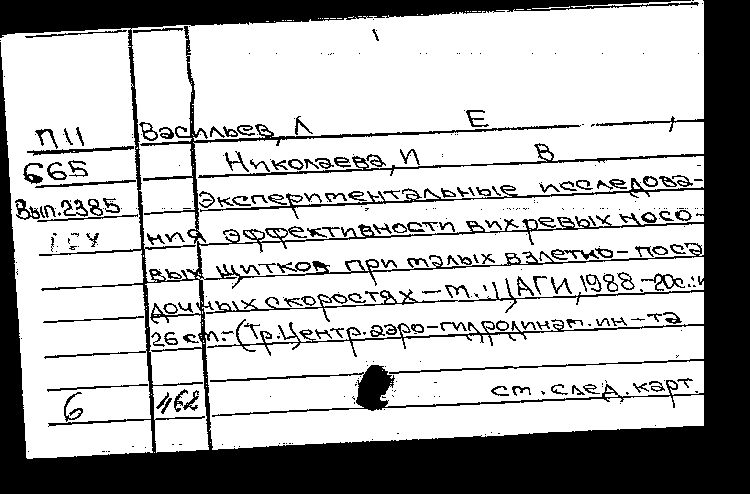 П11 Васильев, Л Е,
665 Николаева, И В
Вып.2385 Экспериментальные исследова-
ния эффективности вихревых носо-
вых щитков при малых взлетно-поса
дочных скоростях - М.: ЦАГИ, 1988. - 20с.:и
26 см. - (Тр. Центр. аэро-гидродинам. ин-та
6 462 см. след. карт.